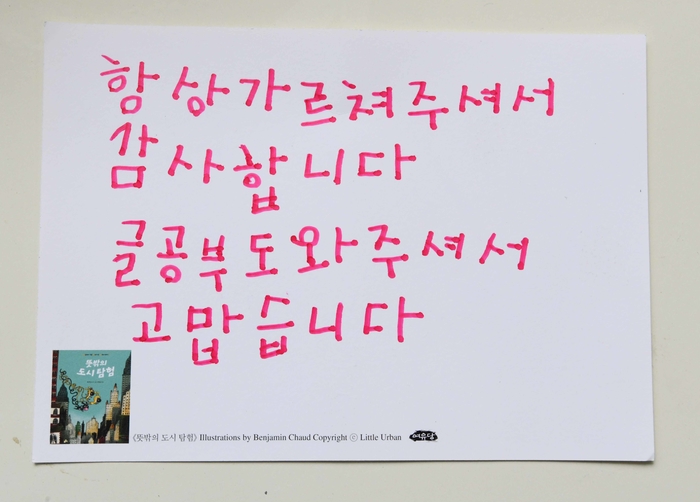 항상가르쳐주셔서
감사합니다
글공부도와주셔서
고맙습니다
뜻밖의
도시 탐험
《뜻밖의 도시 탐험》 Illustrations by Benjamin Chaud Copyright ⓒ Little Urban
여유당